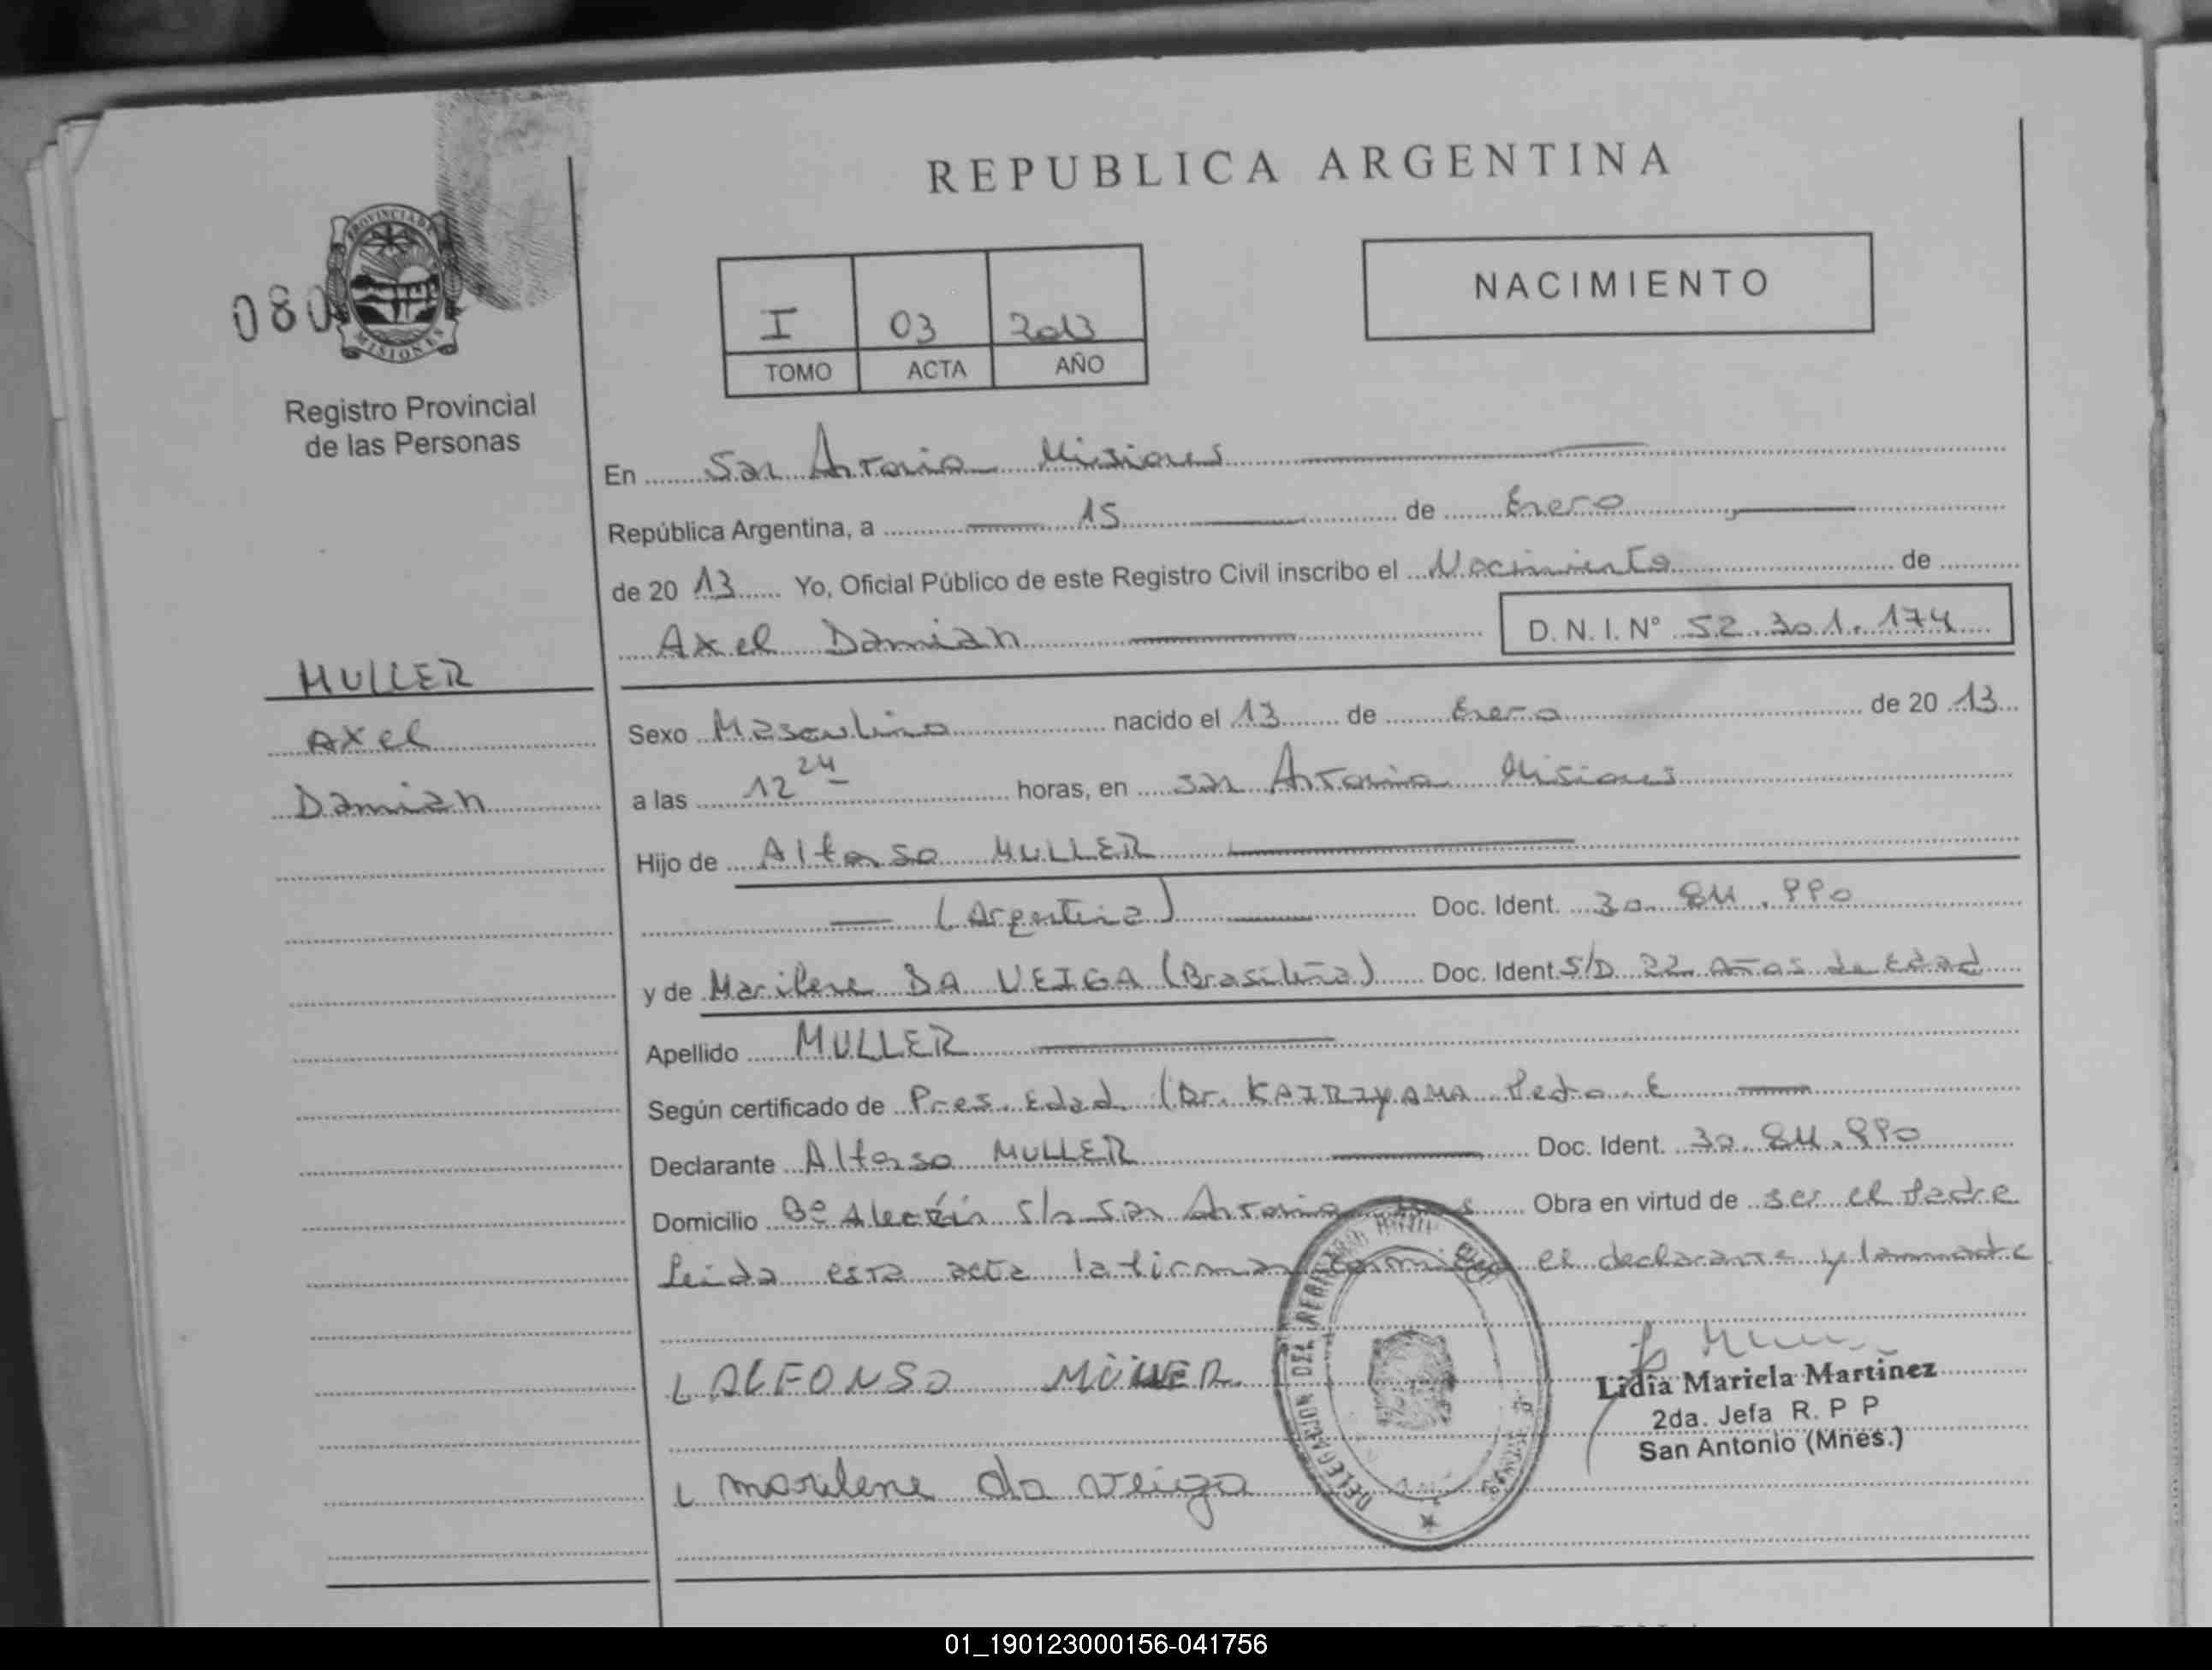 REPUBLICA ARGENTINA
080
PROVINCIA DE
MISIONES
Registro Provincial
de las Personas
I 03 2013
TOMO ACTA AÑO
NACIMIENTO
En San Antonio Misiones
República Argentina, a 15 de Enero
de 20 13 Yo, Oficial Público de este Registro Civil inscribo el Nacimiento de
Axel Damián D. N. I. Nº 52.301.174
MULLER
Axel
Damián
Sexo Masculino nacido el 13 de Enero de 20 13
a las 12 24 horas, en San Antonio Misiones
Hijo de Alfonso MULLER
(Argentina) Doc. Ident. 30.
y de Marilene DA VEIGA (Brasileña) Doc. Ident. S/D 22 Años de Edad
Apellido MULLER
Según certificado de Pres. Edad (Dr. Pedro E
Declarante Alfonso MULLER Doc. Ident. 30.
Domicilio Bº Alecrín s/n San Antonio Obra en virtud de ser el Padre
Leída esta acta la firman conmigo el declarante y la madre
ALFONSO MÜLLER
marilene da veiga
DELEGACION DEL REGISTRO
Lidia Mariela Martinez
2da. Jefa R. P P
San Antonio (Mnes.)
01_190123000156-041756